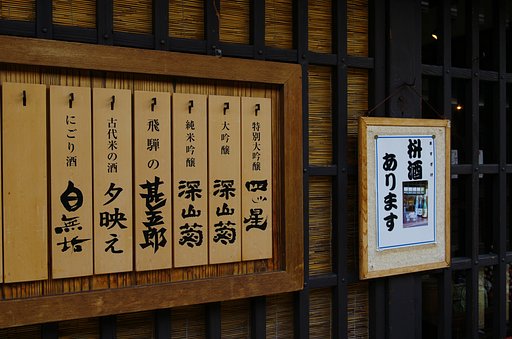 枡酒
あります
特別大吟醸
四ツ星
大吟醸
深山菊
純米吟醸
深山菊
飛騨の
甚五郎
古代米の酒
夕映え
にごり酒
白無垢